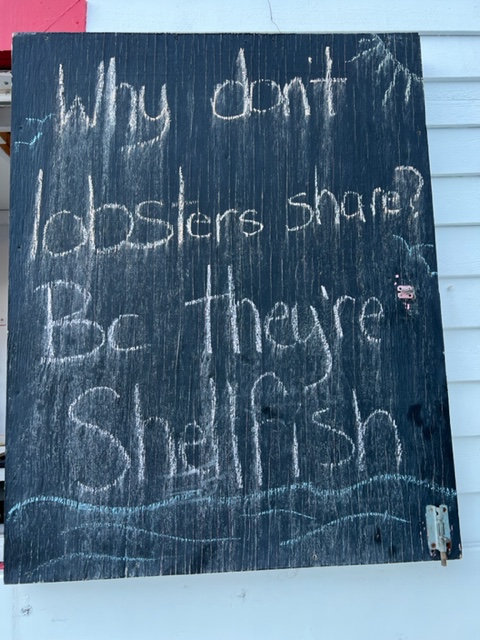 Why don't
lobsters share?
Bc they're
Shellfish